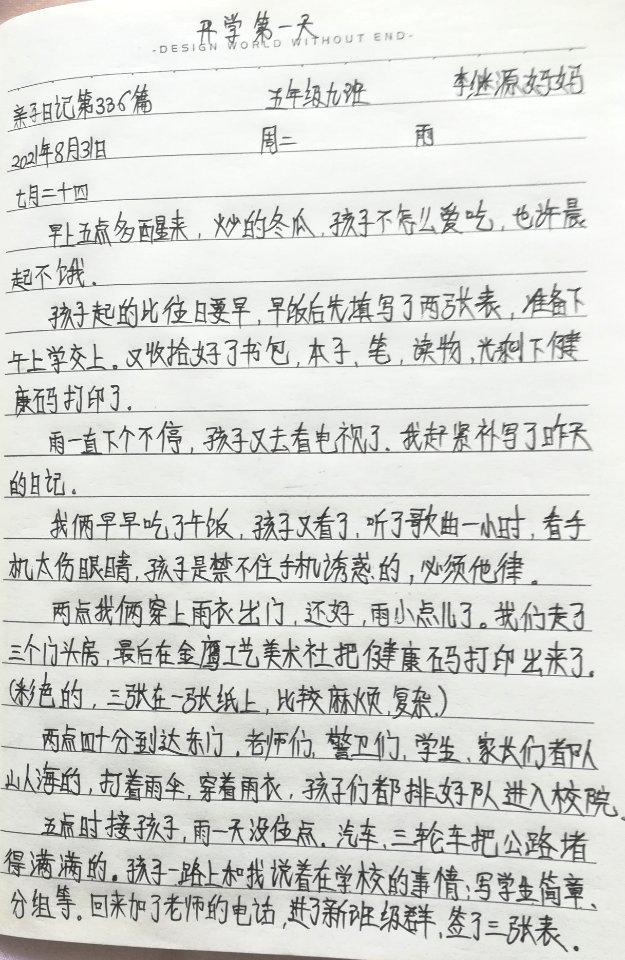 开学第一天
-DESIGN WORLD WITHOUT END-
亲子日记第336篇 五年级九班 李继源妈妈
2021年8月31日 周二 雨
七月二十四
早上五点多醒来，炒的冬瓜，孩子不怎么爱吃，也许晨
起不饿。
孩子起的比往日要早，早饭后先填写了两张表，准备下
午上学交上。又收拾好了书包，本子、笔，读物，光剩下健
康码打印了。
雨一直下个不停，孩子又去看电视了。我赶紧补写了昨天
的日记。
我俩早早吃了午饭，孩子又看了，听了歌曲一小时，看手
机太伤眼睛，孩子是禁不住手机诱惑的，必须他律。
两点我俩穿上雨衣出门，还好，雨小点儿了。我们走了
三个门头房，最后在金鹰工艺美术社把健康码打印出来了。
（彩色的，三张在一张纸上，比较麻烦，复杂。）
两点四十分到达东门，老师们，警卫们，学生、家长们都队
山人海的，打着雨伞，穿着雨衣，孩子们都排好队进入校院。
五点时接孩子，雨一天没住点。汽车、三轮车把公路堵
得满满的。孩子一路上和我说着在学校的事情；写学生简章、
分组等。回来加了老师的电话，进了新班级群，签了三张表。